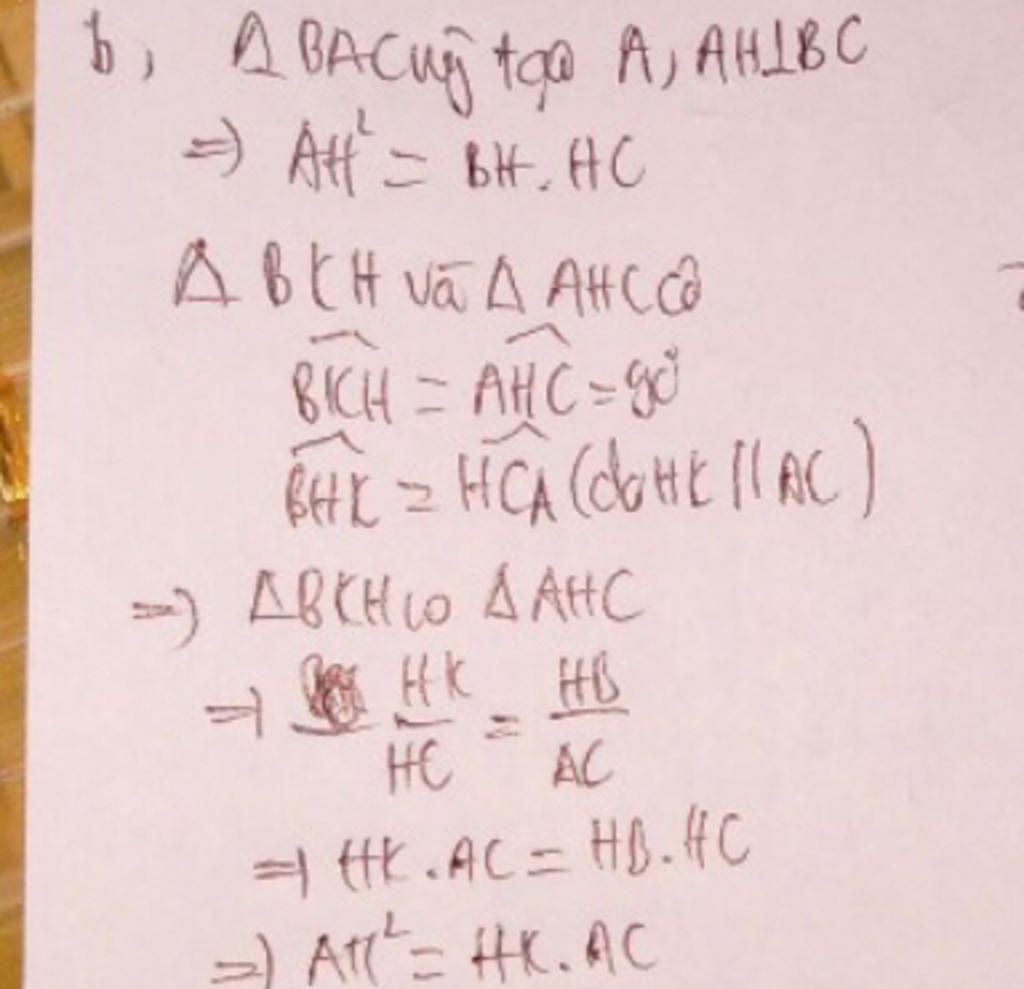 b, Δ BAC vuông tại A, AH⊥BC
=> AH² = BH. HC
Δ BKH và Δ AHC có
BKH = AHC = 90°
BHK = HCA (do HK // AC)
=> ΔBKH ∽ ΔAHC
=> HK/HC = HB/AC
=> HK. AC = HB. HC
=> AH² = HK. AC